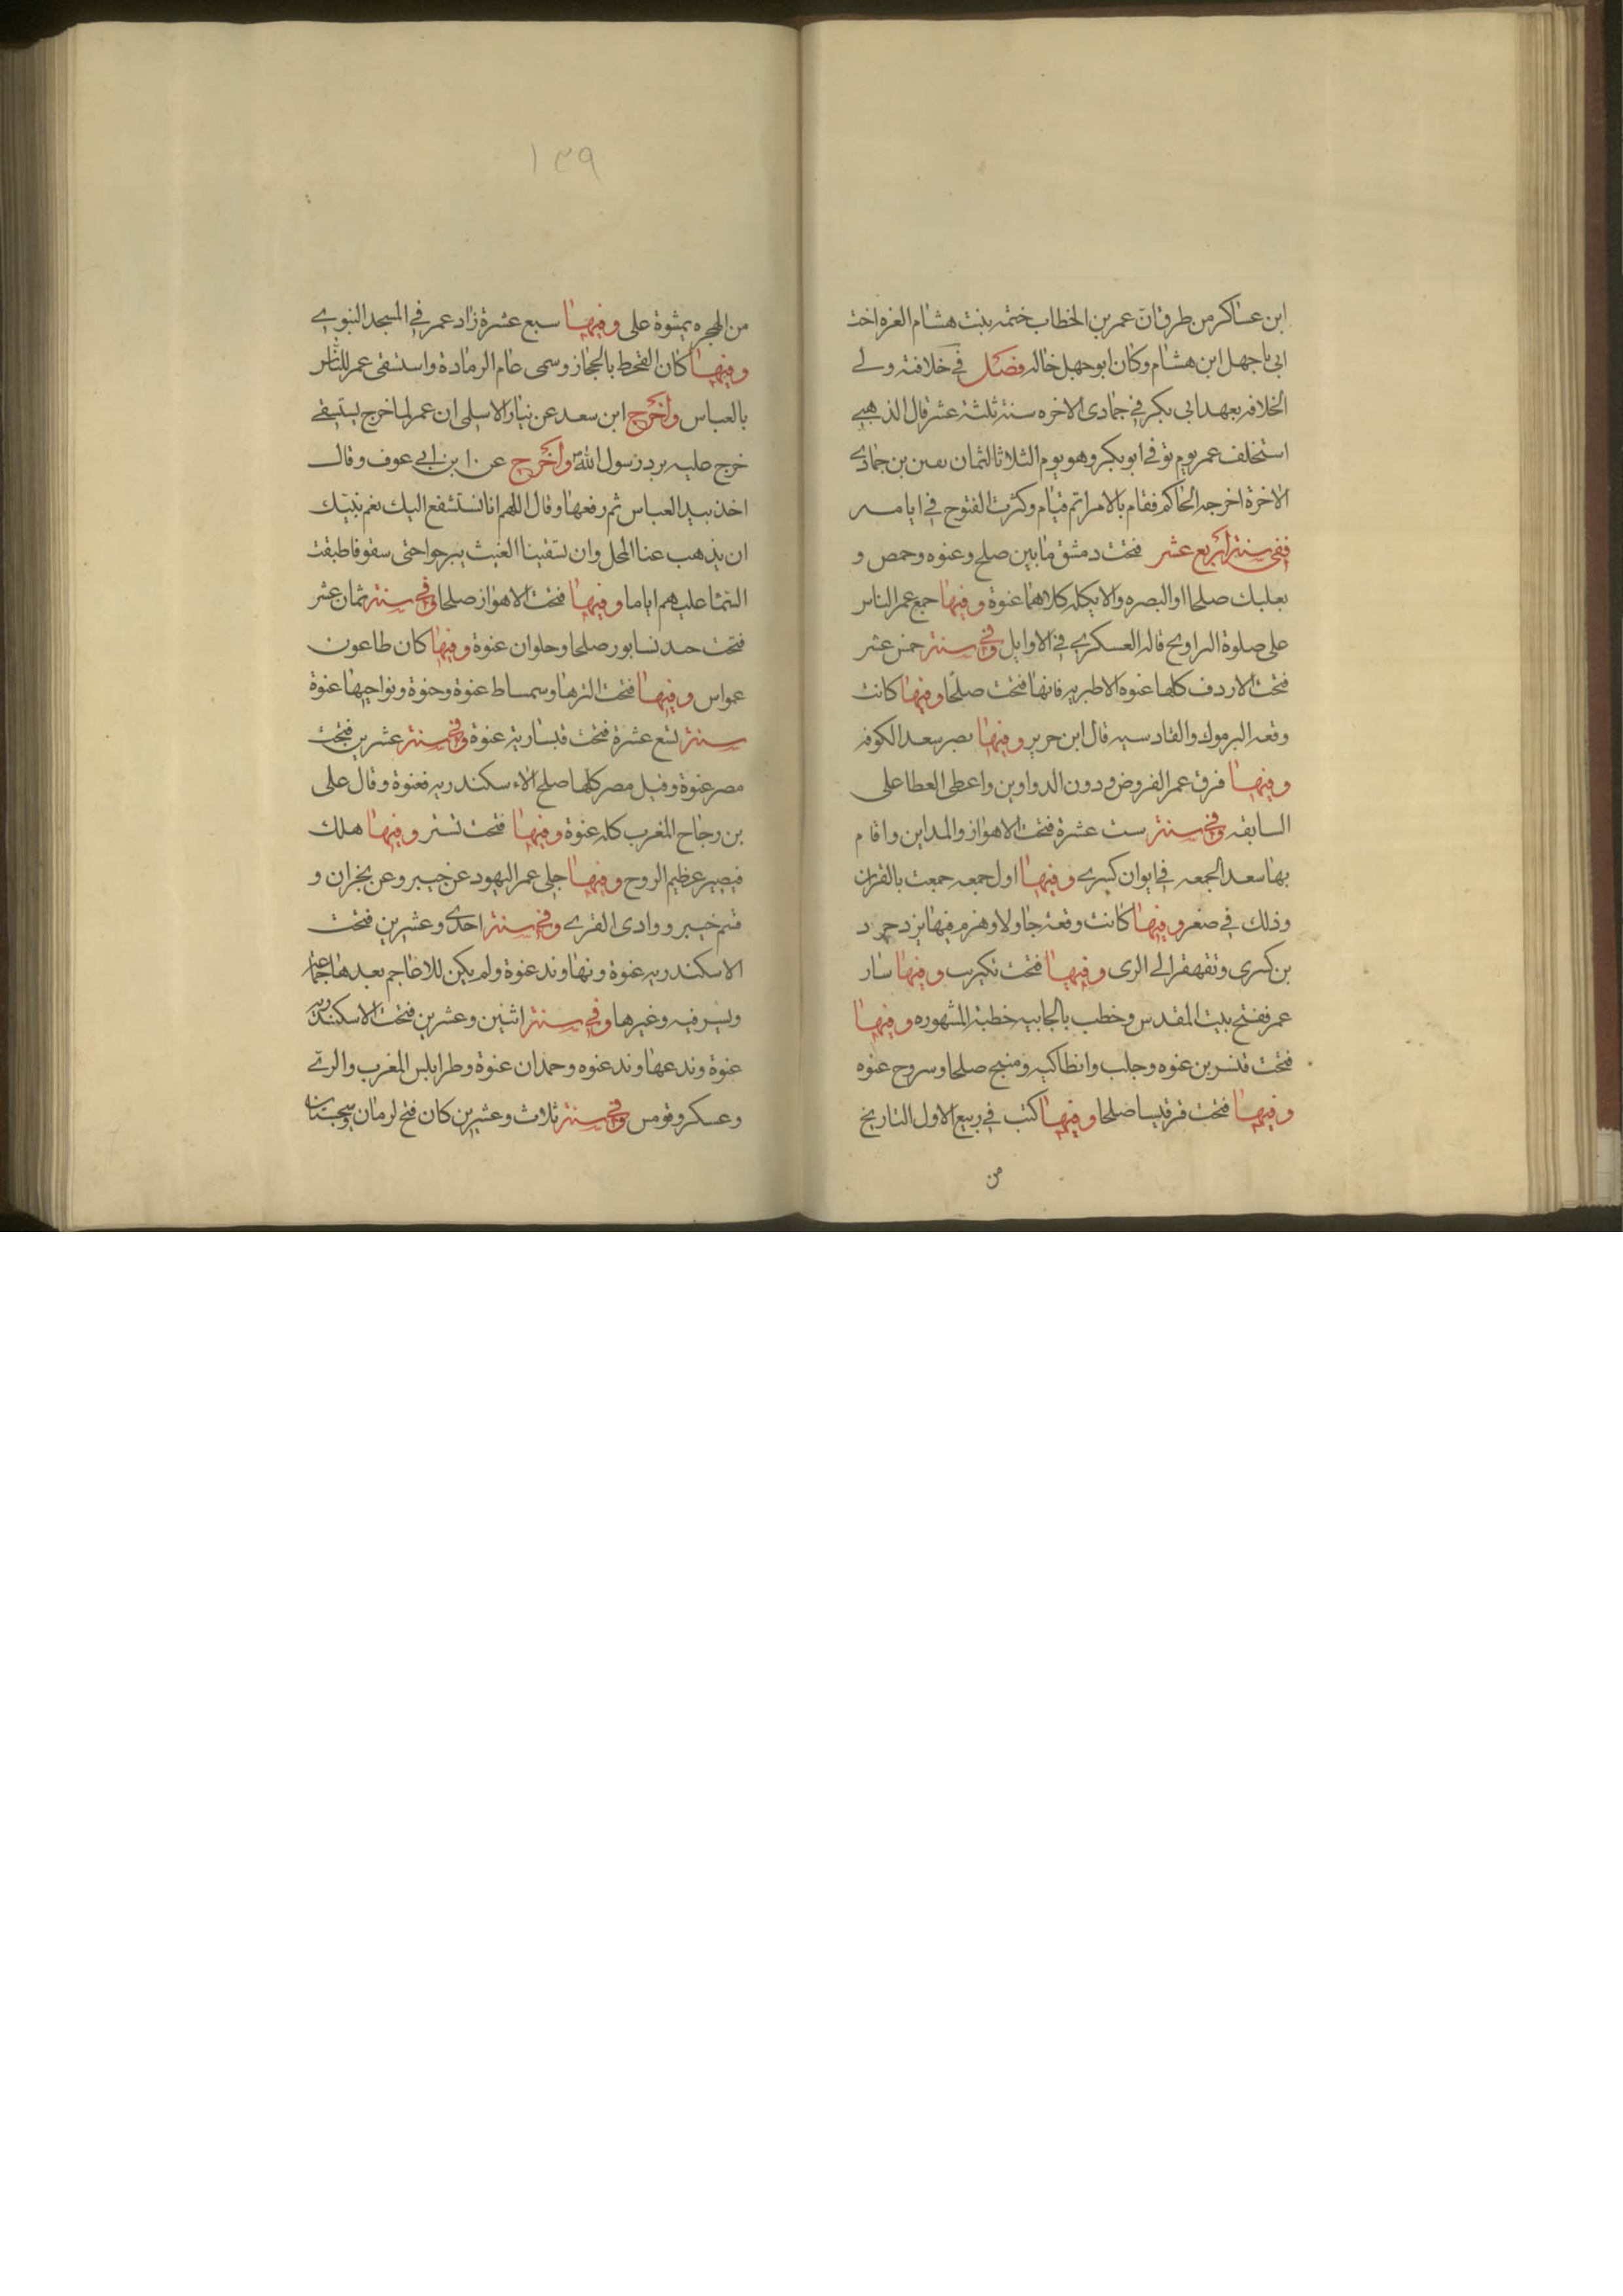 ابن عساكر من طرق ان عمر بن الخطاب ختمه بنت هشام الغره اخت
ابي باجهل ابن هشام وكان ابو جهل خاله فصل في خلافته ولي
الخلافه بعهد ابي بكر في جمادى الاخره سنة ثلثة عشر قال الذهبي
استخلف عمر يوم توفي ابو بكر وهو يوم الثلاثا لثمان بقين بن جمادي
الاخرة اخرجه الحاكم فقام بالامر اتم قيام وكثرت الفتوح في ايامه
ففي سنة اربع عشر فتحت دمشق ما بين صلح وعنوه وحمص و
بعلبك صلحا او البصره والايكله كلاهما عنوة وفيها جمع عمر الناس
على صلوة التراويح قاله العسكري في الاوايل وفي سنة خمس عشر
فتحت الاردف كلها عنوه الا طبريه فانها فتحت صلحا وفيها كانت
وقعه اليرموك والقادسيه قال ابن جرير وفيها نصر سعد الكوفه
وفيها فرق عمر الفروض ودون الدواوين واعطى العطا على
السابقه وفي سنة ست عشرة فتحت الاهواز والمداين واقام
بها سعد الجمعه في ايوان كسرى وفيها اول جمعه جمعت بالقران
وذلك في صغر وفيها كانت وقعة جاولا وهزم فيها يزدجرد
بن كسرى وتقهقر الى الرى وفيها فتحت تكريب وفيها سار
عمر ففتح بيت المقدس وخطب بالجابيه خطبة المشهوره وفيها
فتحت قنسرين عنوه وجلب وانطاكيه ومنبج صلحا وسروج عنوه
وفيها فتحت قرقيسا صلحا وفيها كتب في ربيع الاول التاريخ
من
١٣٩
من الهجره بمشوة على وفيها سبع عشرة زاد عمر في المسجد النبوي
وفيها كان القحط بالحجاز وسمى عام الرمادة واستسقى عمر للناس
بالعباس واخرج ابن سعد عن نيار الاسلمى ان عمر لما خرج يستسقي
خرج عليه برد رسول الله واخرج عن ابن ابي عوف وقال
اخذ بيد العباس ثم رفعها وقال اللهم انا نستشفع اليك بعم نبيك
ان يذهب عنا المحل وان تسقينا الغيث يبرحوا حتى سقوا فاطبقت
السما عليهم اياما وفيها فتحت الاهواز صلحا وفي سنة ثمان عشر
فتحت حد نسابور صلحا وحلوان عنوة وفيها كان طاعون
عمواس وفيها فتحت الرها وسمساط عنوة وحنوة ونواحيها عنوة
سنة تسع عشرة فتحت قيسارية عنوة وفي سنة عشرين فتحت
مصر عنوة وقيل مصر كلها صلح الاء سكندريه فعنوة وقال على
بن رجاح المغرب كله عنوة وفيها فتحت تستر وفيها هلك
قيصر عظيم الروح وفيها جلى عمر اليهود عن خيبر وعن نجران و
قسم خيبر ووادى القرى وفي سنة احدى وعشرين فتحت
الاسكندريه عنوة ونهاوند عنوة ولم يكن للاعاجم بعدها جماعة
وتسرفيه وغيرها وفي سنة اثنين وعشرين فتحت الاسكندريه
عنوة وندعهاوند عنوه وحمدان عنوة وطرابلس المغرب والري
وعسكر وقومس وفي سنة ثلاث وعشرين كان فتح لرمان وسجستان